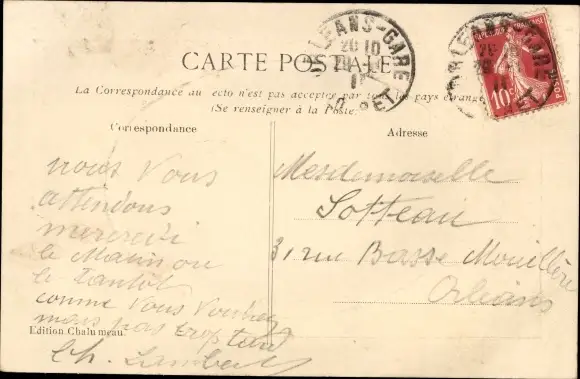 CARTE POSTALE
La Correspondance au ecto n'est pas acceptée par tous les pays étrange
(Se renseigner à la Poste)
Correspondance
Adresse
nous Vous
attendons
mercredi
le Matin ou
le Tantôt
comme Vous Voudrez
mais pas trop tard
Ch. Lambert
Edition Chalumeau
Mesdemoiselle
Sotteau
31 rue Basse Mouillère
Orléans
ORLEANS-GARE
20 10
LOIRET
10c